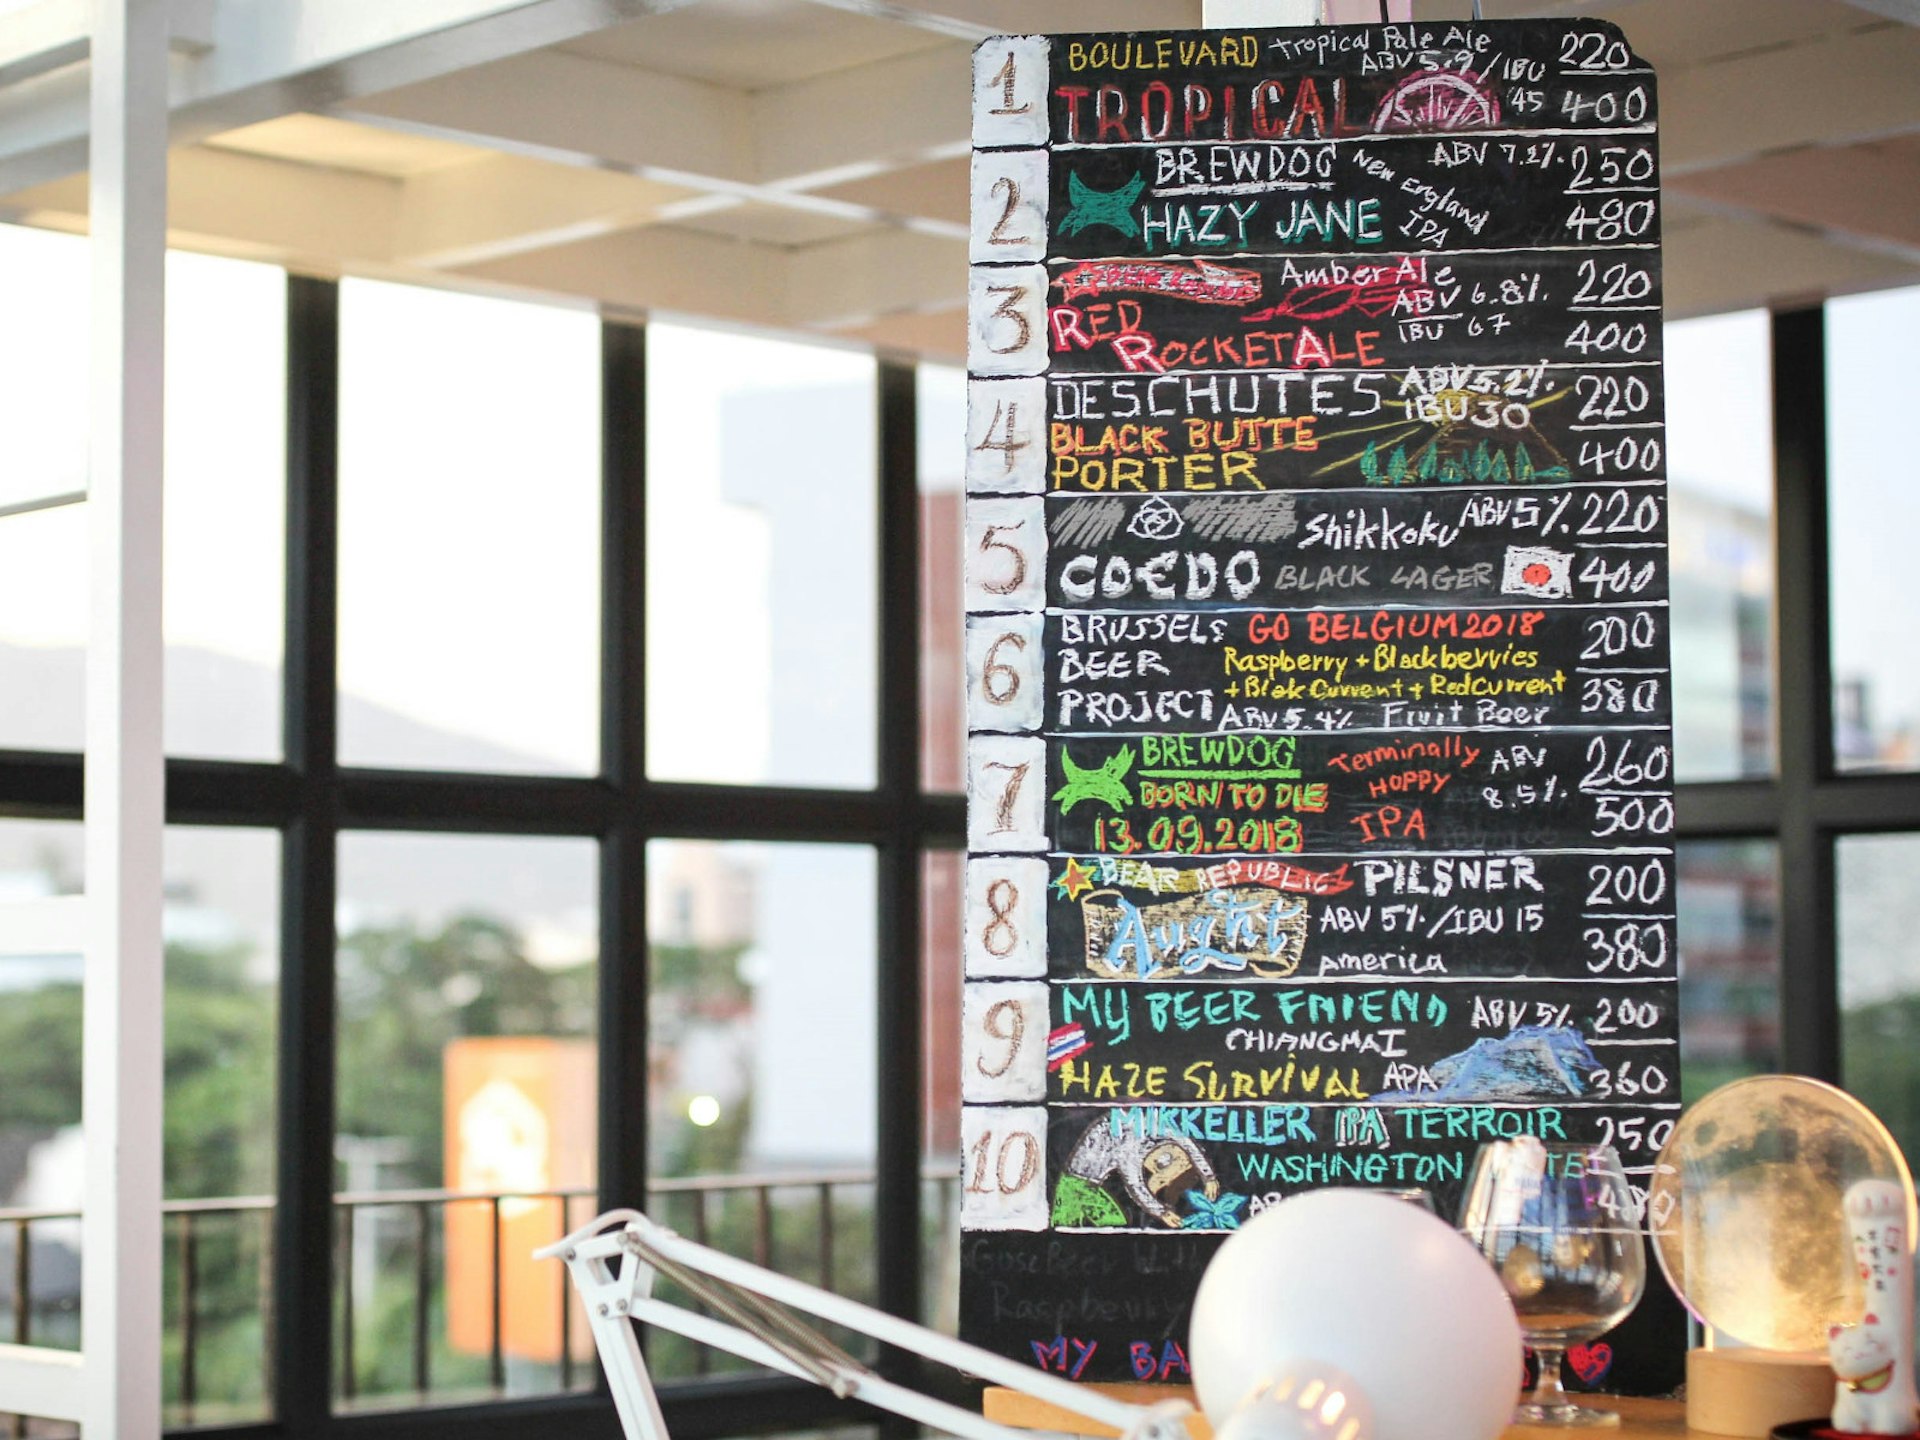 1
BOULEVARD Tropical Pale Ale 220
ABV 5.9 / IBU 45
TROPICAL 400
2
BREWDOG New England IPA ABV 7.2% 250
HAZY JANE 480
3
Amber Ale 220
ABV 6.8%
IBU 67
RED
ROCKET ALE 400
4
DESCHUTES ABV 5.2% 220
IBU 30
BLACK BUTTE
PORTER 400
5
Shikkoku ABV 5% 220
COEDO BLACK LAGER 400
6
BRUSSELS GO BELGIUM 2018 200
BEER Raspberry + Blackberries
+ Blak Current + Red Current
PROJECT ABV 5.4% Fruit Beer 380
7
BREWDOG Terminally ABV 260
HOPPY 8.5%
BORN TO DIE
13.09.2018 IPA 500
8
BEAR REPUBLIC PILSNER 200
Aught ABV 5% / IBU 15
America 380
9
MY BEER FRIEND ABV 5% 200
CHIANGMAI
HAZE SURVIVAL APA 360
10
MIKKELLER IPA TERROIR 250
WASHINGTON
480
Gose Beer With
Raspberry
MY